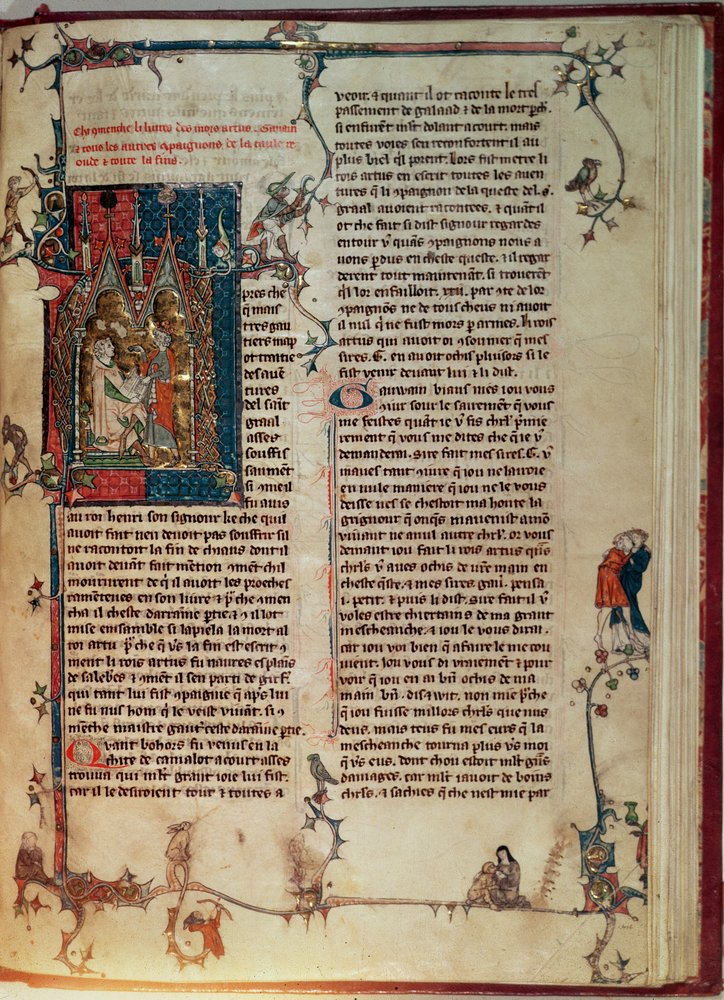 Chi cōmenche li livres des mors artus. Gauvain
⁊ tous les autres ɔpaignons de la taule re
onde ⁊ toute la fins.
pres che
q̄ mais
tres gau
tiers map
ot traitie
des aven
tures
del saīt
graal
asses
souffis
saumēt
si ɔ meil
fu avis
au roi henri son signour ke che quil
avoit fait nen devoit pas souffir sil
ne racontoit la fin de chiaus dont il
avoit devāt fait mention ⁊ ɔmēt chil
moururent de q̄ il avoit les proeches
ramētenes en son livre ⁊ p̄ che ɔmen
cha il cheste darraīne p̄tie. ⁊ q̄t il lot
mise ensamble si lapiela la mort al
roi artu p̄ che q̄ v̄s la fin est escrit ɔ
ment li rois artus fu navres es plaīs
de salebes ⁊ ɔmēt il sen parti de girf.
qui tant lui fist ɔpaignie q̄ ap̄s lui
ne fu nus hom q̄ le veist vivāt. si ɔ
mēche maistre gaut̄. ceste darraīne p̄tie.
Quant bohors fu venus en la
chite de camalot a court asses
trouva qui ml̄t grant ioie lui fist.
car il le desiroient tout ⁊ toutes a
veoir. ⁊ quant il ot raconte le tres
passement de galaad ⁊ de la mort p̄ch̄.
si en furēt ml̄t dolant a court. mais
toutes voies sen reconfortent il au
plus biel q̄l porent. Lors fist metre li
rois artus en escrit toutes les aven
tures q̄ li ɔpaignon de la queste del .s.
graal avoient racontees. ⁊ quāt il
ot che fait si dist signour regardes
entour v̄ quās ɔpaignons nous a
vons p̄dus en cheste queste. ⁊ il regar
derent tout maintenāt. si trouerēt
q̄l lor en falloit .xxii. par ɔte de lor
ɔpaignōs ne de tous cheus ni avoit
il nul q̄ ne fust mors par armes. li rois
artus qui avoit oi ɔsonnier q̄ mes
sires .G. en avoit ochis pluisors si le
fist venir devant lui ⁊ li dist.
Gauwain biaus nies iou vous
ɔiur sour le sairement q̄ vous
me festes quāt ie v̄ fis chr̄l. p̄mie
rement q̄ vous me dites che q̄ ie v̄
demanderai. Sire fait mes sires .G. v̄
maves tant ɔiure q̄ iou ne lairoie
en nule maniere q̄ iou ne le vous
desisse
grignour q̄ onq̄s mavenist
vivant ne a nul autre chr̄l. Or vous
demant iou fait li rois artus quās
chr̄ls v̄ aves ochis de vr̄e main en
cheste q̄ste. ⁊ mes sires gau. pensa
.i. petit. ⁊ puis li dist. Sire fait il v̄
voles estre chiertains de ma grant
mescheanche. ⁊ iou le vous dirai.
car iou voi bien q̄ a faire le me cou
vient. Iou vous di vraiement ⁊ pour
voir q̄ iou en ai bn̄ ochis de ma
main bn̄ .dis ⁊ wit. non mie p̄ che
q̄ iou fuisse millors chr̄ls que nus
deus. mais teus fu mes eurs q̄ la
mescheanche tourna plus v̄s moi
q̄ v̄s eus. dont chou estoit ml̄t grās
damages. car ml̄t i avoit de boins
chr̄ls. ⁊ sachies q̄ che nest mie par